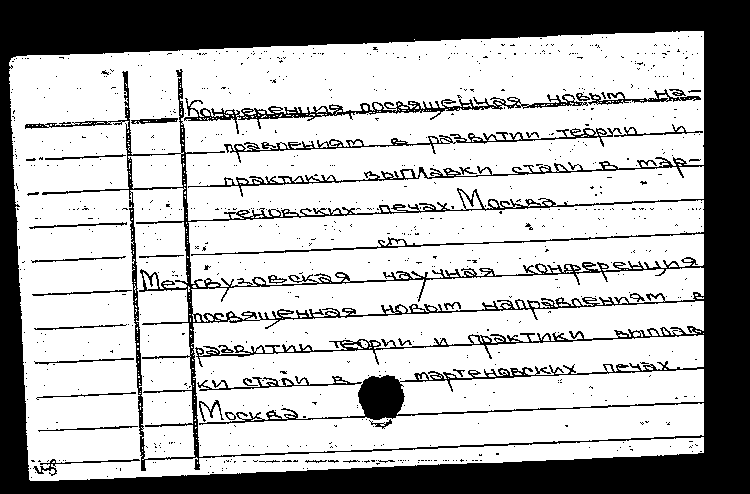 Конференция, посвященная новым на-
правлениям в развитии теории и
практики выплавки стали в мар-
теновских печах. Москва.
см.
Межвузовская научная конференция
посвященная новым направлениям в
развитии теории и практики выплав
ки стали в мартеновских печах.
Москва.